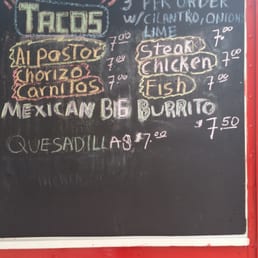 TACOS
3 PER ORDER
W/CILANTRO, ONION
LIME
Al Pastor 7.00
Chorizo 7.00
Carnitas 7.00
Steak 7.00
Chicken 7.00
Fish 7.00
MEXICAN BIG BURRITO
$7.50
QUESADILLAS $7.00